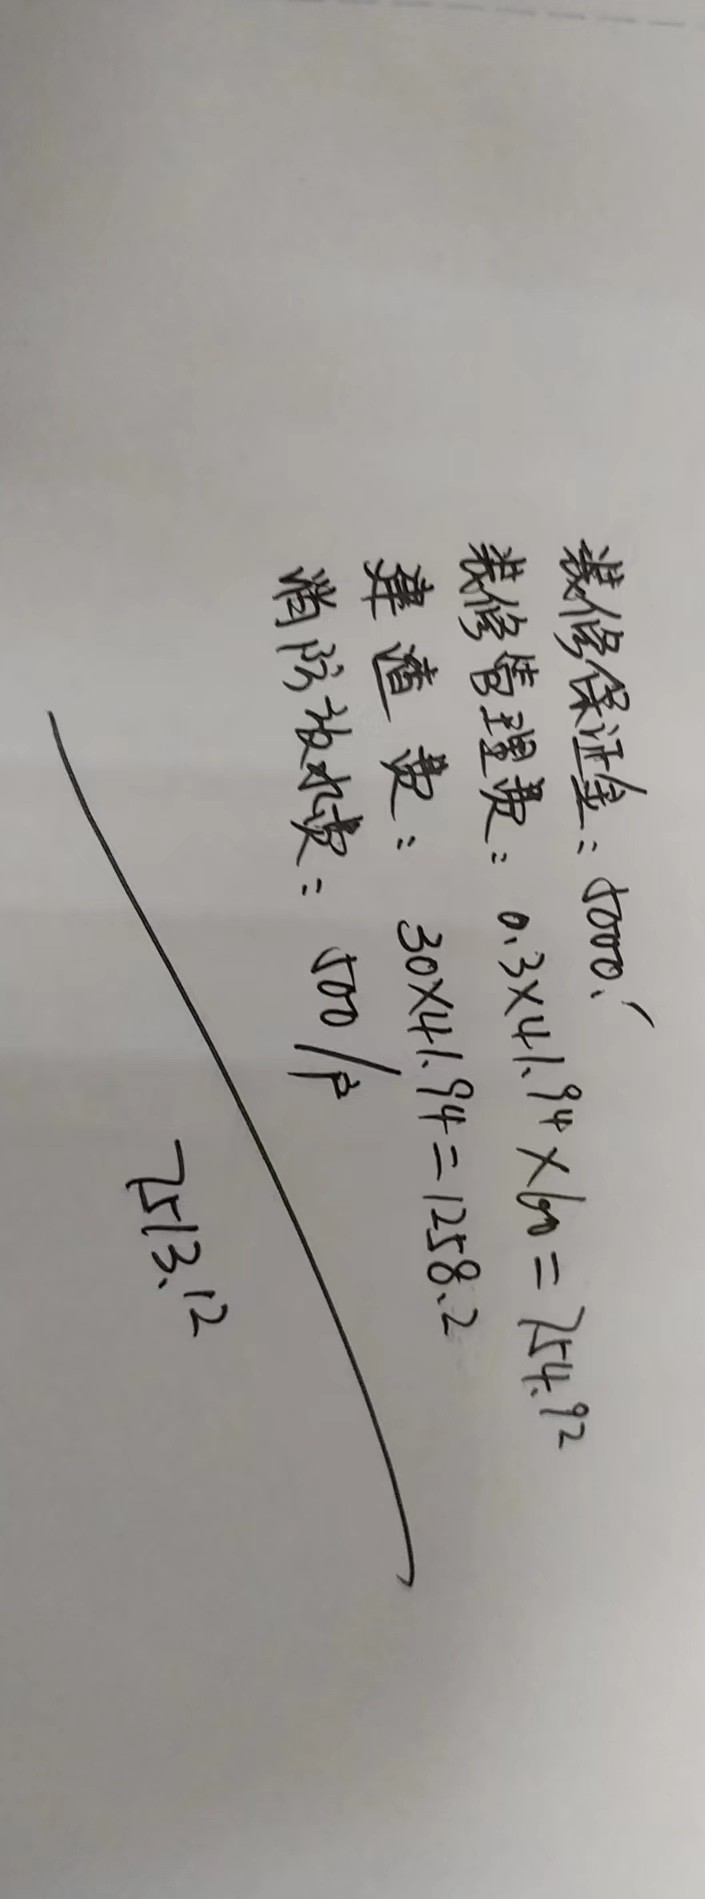 装修保证金：5000.
装修管理费：0.3×41.94×60=754.92
建渣费：30×41.94=1258.2
消防放水费：500/户
7513.12